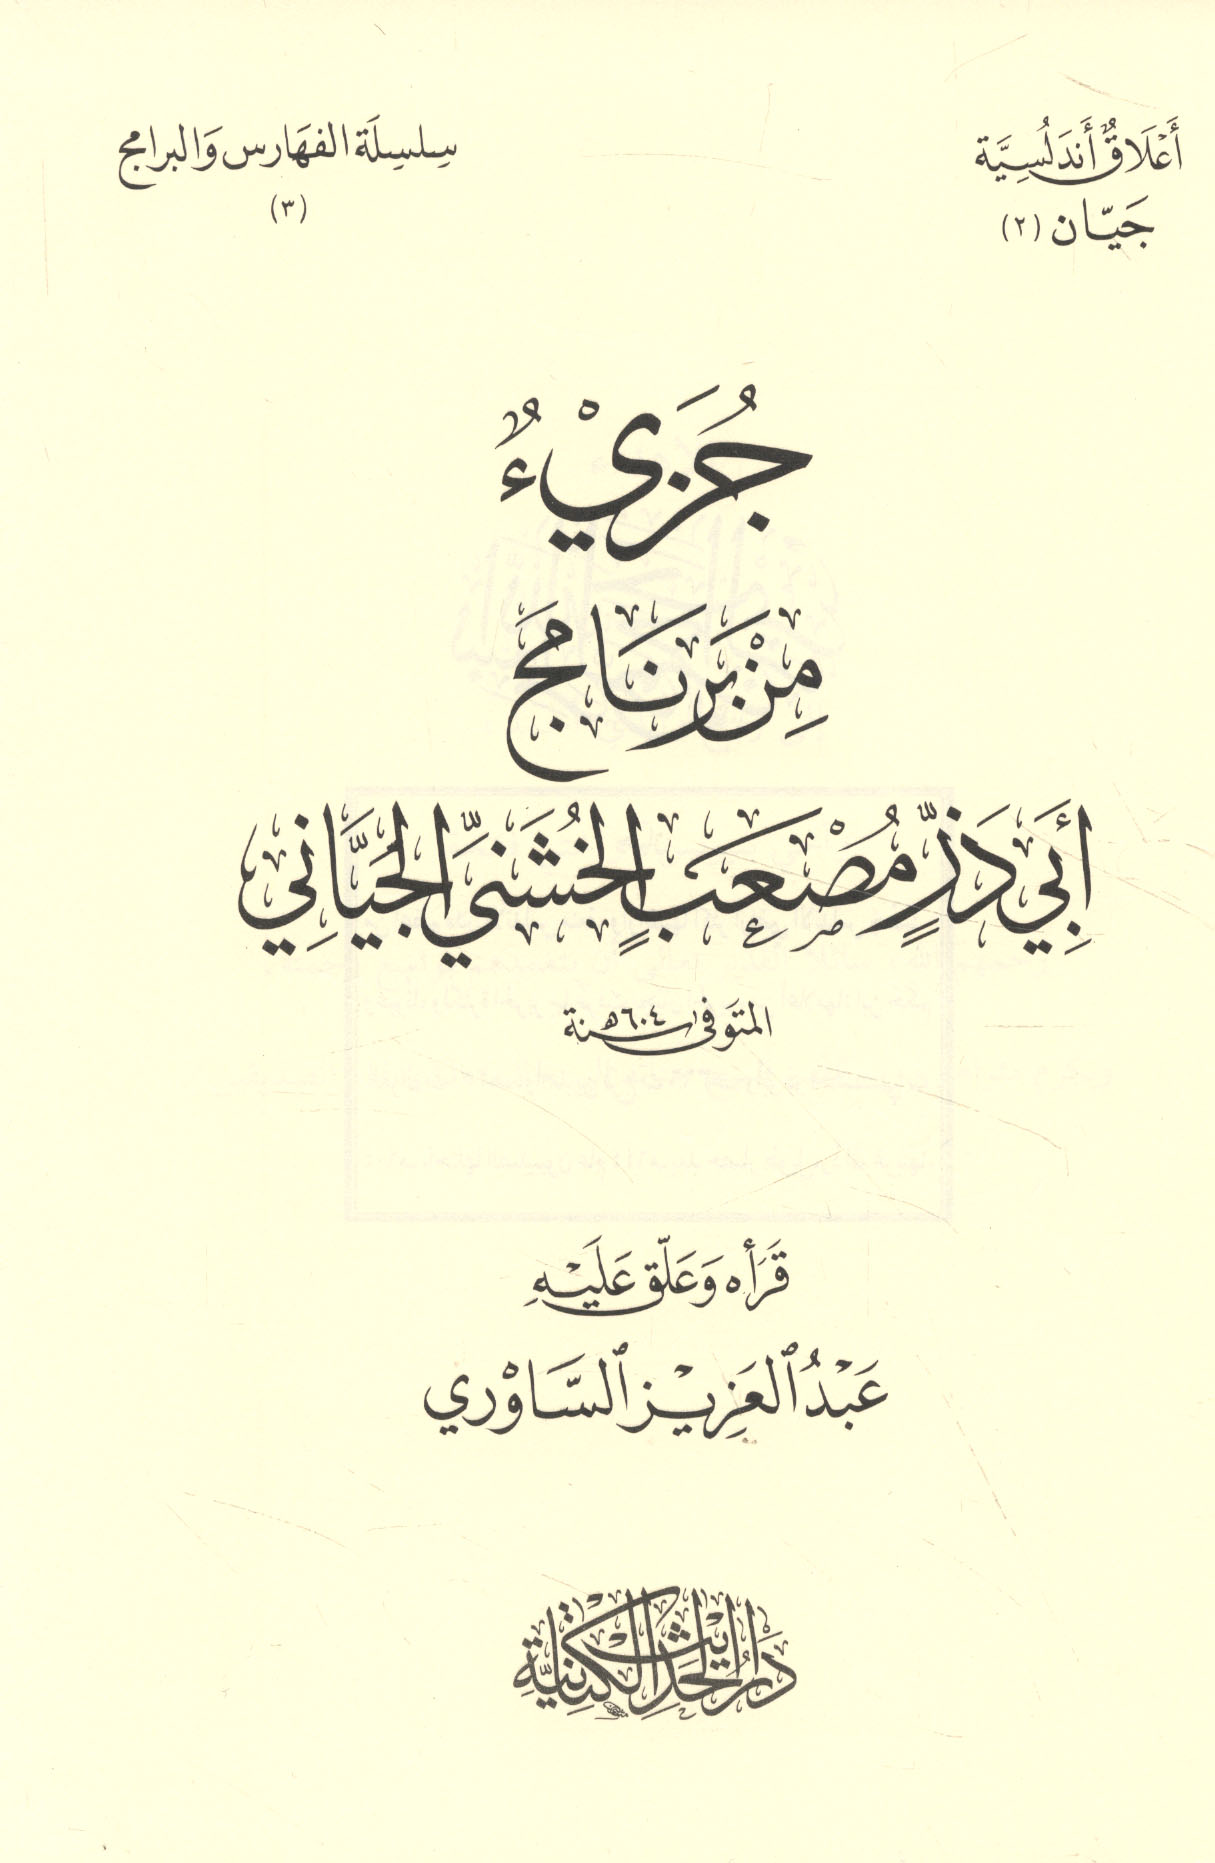 أَعْلَاقٌ أَندَلُسِيَّة
جَيّان (٢)
سِلسِلَة الفهَارس وَالبرامج
(٣)
جُزَيْءٌ
مِنْ بَرنَامَج
أَبِي ذَرٍّ مُصْعَبٍ الخُشَنيِّ الجَيَّانِي
المتوَفى سنة ٦٠٤هـ
قَرَأه وَعَلّق عَلَيْهِ
عَبْدُ ٱلعَزِيْز ٱلسَّاوْري
دَارُ الحَدِيث الكتانِيَّةِ